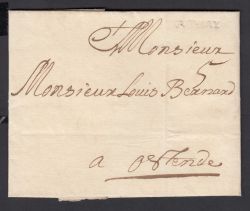 Monsieur
5
Monsieur Louis Bernard
a Ostende